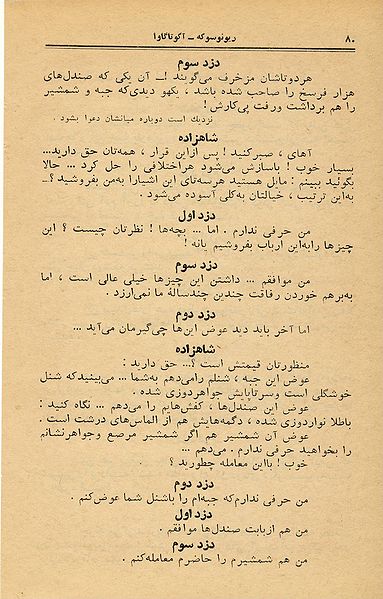 ۸۰
ریونوسوکه ـ آکوتاگاوا
دزد سوم
هردوتاشان مزخرف می‌گویند !ـ آن یکی که صندل‌های
هزار فرسخ را صاحب شده باشد ، یکهو دیدی‌که جبه و شمشیر
را هم برداشت ورفت پی‌کارش !
نزدیك است دوباره میانشان دعوا بشود .
شاهزاده
آهای ، صبرکنید ! پس ازاین قرار ، همه‌تان حق دارید...
بسیار خوب ! باسازش می‌شود هراختلافی را حل کرد ... حالا
بگوئید ببینم : مایل هستید هرسه‌تای این اشیارا به‌من بفروشید ؟ـ
به‌این ترتیب ، خیالتان به‌کلی آسوده می‌شود .
دزد اول
من حرفی ندارم . اما ... بچه‌ها ! نظرتان چیست ؟ این
چیزها رابه‌این ارباب بفروشیم یانه !
دزد سوم
من موافقم ... داشتن این چیزها خیلی عالی است ، اما
به‌برهم خوردن رفاقت چندین چندسالهٔ ما نمی‌ارزد .
دزد دوم
اما آخر باید دید عوض این‌ها چی‌گیرمان می‌آید ...
شاهزاده
منظورتان قیمتش است ؟... حق دارید :
عوض این جبه ، شنلم رامی‌دهم به‌شما ... می‌بینیدکه شنل
خوشگلی است وسرتاپایش جواهردوزی شده .
عوض این صندل‌ها ، کفش‌هایم را می‌دهم ... نگاه کنید :
باطلا نواردوزی شده ، دگمه‌هایش هم از الماس‌های درشت است .
عوض آن شمشیر هم اگر شمشیر مرصع وجواهرنشانم
را بخواهید حرفی ندارم . می‌دهم ...
خوب ! بااین معامله چطورید ؟
دزد دوم
من حرفی ندارم‌که جبه‌ام را باشنل شما عوض‌کنم .
دزد اول
من هم ازبابت صندل‌ها موافقم .
دزد سوم
من هم شمشیرم را حاضرم معامله‌کنم .